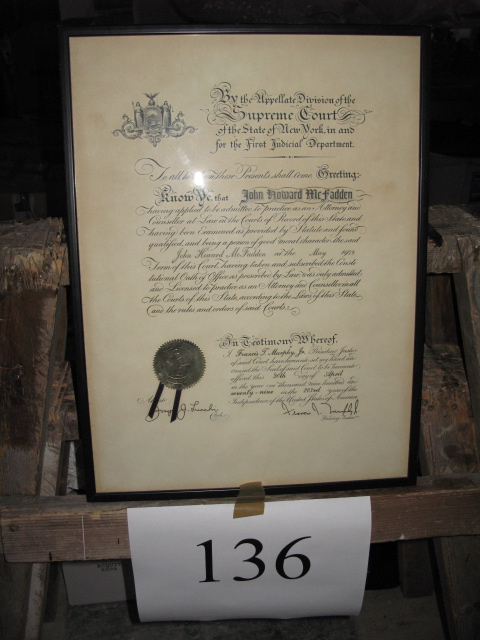 By the Appellate Division of the
Supreme Court
of the State of New York, in and
for the First Judicial Department.
To all to whom these Presents shall come Greeting:
Know Ye, that John Howard McFadden
having applied to be admitted to practice as an Attorney and
Counsellor at Law in the Courts of Record of this State and
having been Examined as provided by Statute and found
qualified, and being a person of good moral character, the said
John Howard McFadden at the May 1979
Term of this Court, having taken and subscribed the Consti-
tutional Oath of Office as prescribed by Law was duly admitted
and Licensed to practice as an Attorney and Counsellor in all
the Courts of this State, according to the Laws of this State
and the rules and orders of said Courts.
In Testimony Whereof,
I Francis T. Murphy, Jr. Presiding Justice
of said Court have hereunto set my hand and
caused the Seal of said Court to be hereunto
affixed this 30th day of April
in the year one Thousand nine hundred and
seventy-nine in the 203rd year of the
Independence of the United States of America
136